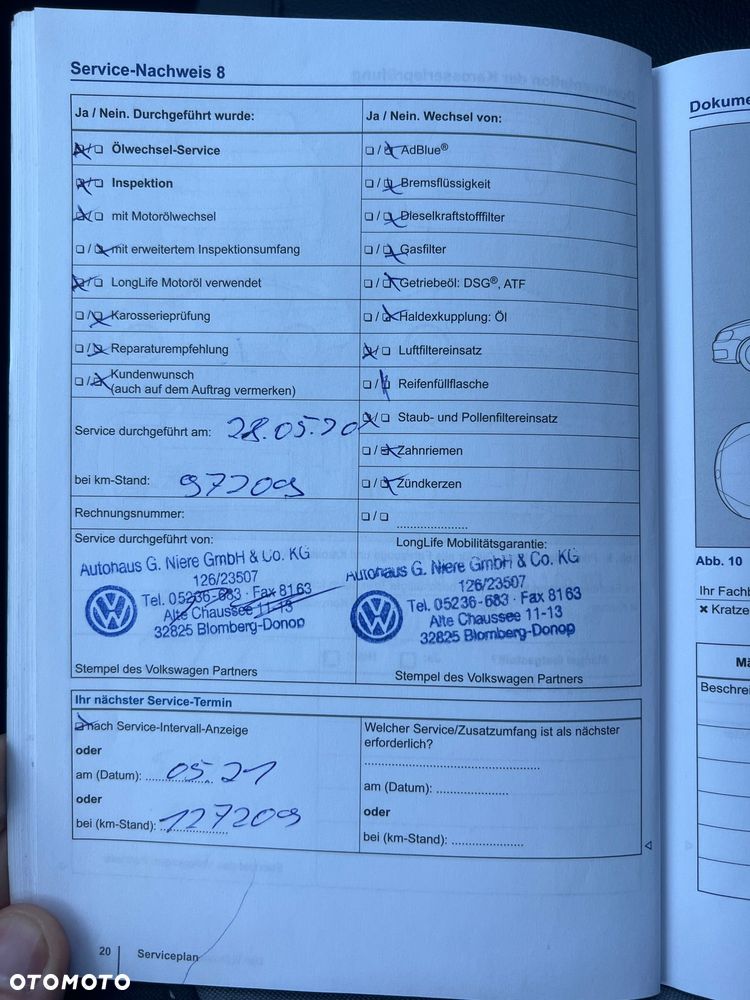 Service-Nachweis 8
Ja / Nein. Durchgeführt wurde:
Ölwechsel-Service
Inspektion
mit Motorölwechsel
mit erweitertem Inspektionsumfang
LongLife Motoröl verwendet
Karosserieprüfung
Reparaturempfehlung
Kundenwunsch
(auch auf dem Auftrag vermerken)
Service durchgeführt am: 28.05.20
bei km-Stand: 97209
Rechnungsnummer:
Ja / Nein. Wechsel von:
AdBlue®
Bremsflüssigkeit
Dieselkraftstofffilter
Gasfilter
Getriebeöl: DSG®, ATF
Haldexkupplung: Öl
Luftfiltereinsatz
Reifenfüllflasche
Staub- und Pollenfiltereinsatz
Zahnriemen
Zündkerzen
Service durchgeführt von:
Autohaus G. Niere GmbH & Co. KG
126/23507
Tel. 05236-683 · Fax 8163
Alte Chaussee 11-13
32825 Blomberg-Donop
Stempel des Volkswagen Partners
LongLife Mobilitätsgarantie:
Autohaus G. Niere GmbH & Co. KG
126/23507
Tel. 05236-683 · Fax 8163
Alte Chaussee 11-13
32825 Blomberg-Donop
Stempel des Volkswagen Partners
Ihr nächster Service-Termin
nach Service-Intervall-Anzeige
oder
am (Datum): 05.21
oder
bei (km-Stand): 127209
Welcher Service/Zusatzumfang ist als nächster
erforderlich?
am (Datum):
oder
bei (km-Stand):
20
Serviceplan
Abb. 10
OTOMOTO